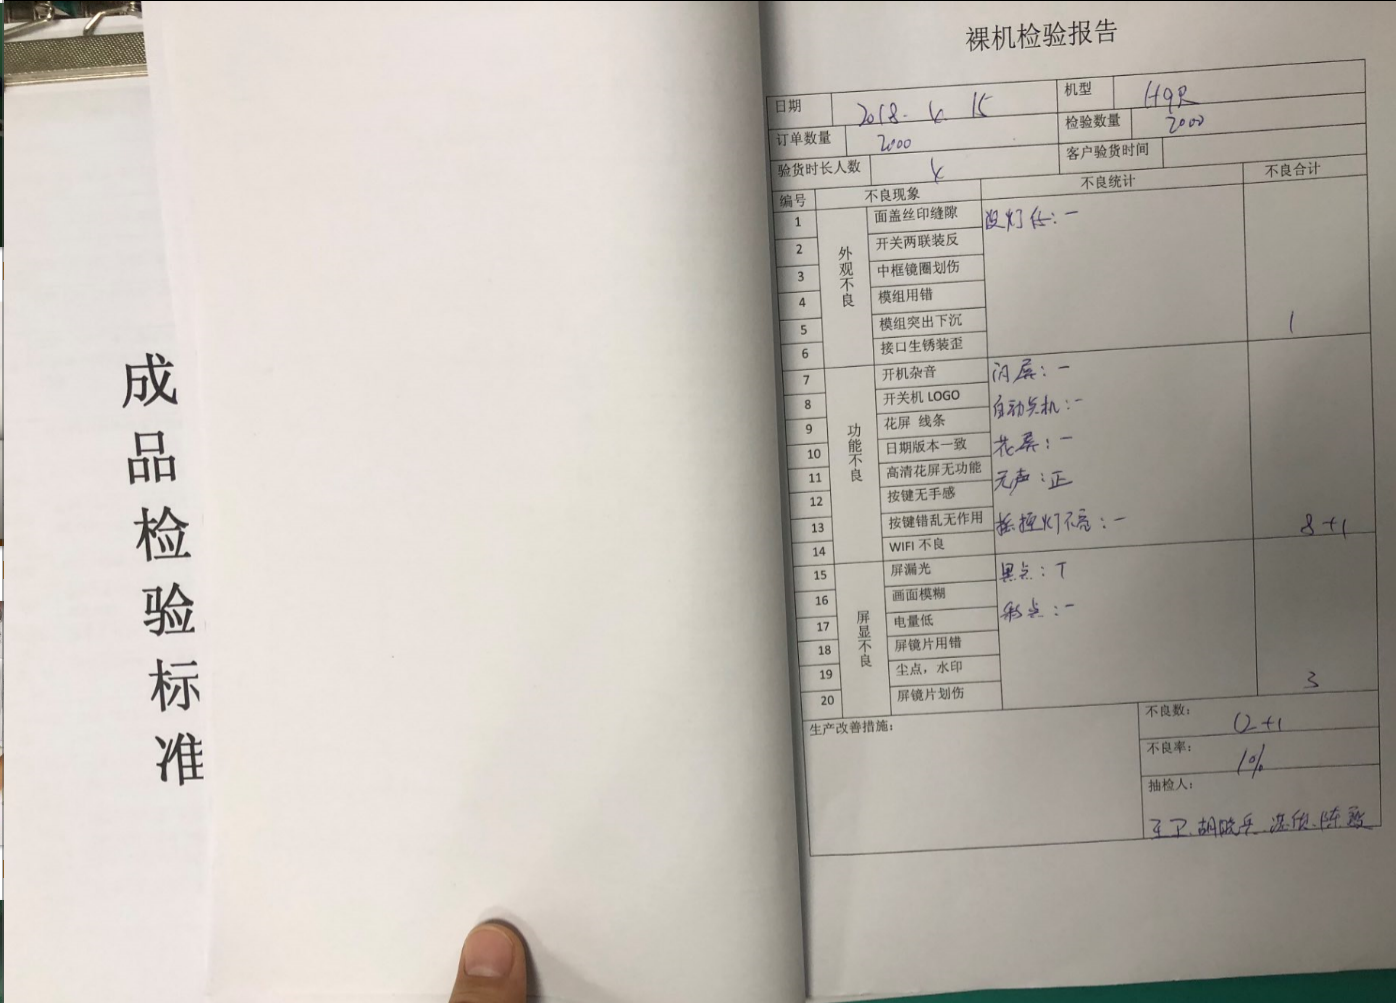 成品检验标准
裸机检验报告
日期 2018. 4. 15 机型 H9R
订单数量 2000 检验数量 2000
验货时长人数 4 客户验货时间
编号 不良现象 不良统计 不良合计
外观不良
1 面盖丝印缝隙
2 开关两联装反
3 中框镜圈划伤
4 模组用错
5 模组突出下沉
6 接口生锈装歪
没灯 : 一
1
功能不良
7 开机杂音
8 开关机 LOGO
9 花屏 线条
10 日期版本一致
11 高清花屏无功能
12 按键无手感
13 按键错乱无作用
14 WIFI 不良
闪屏：一
自动关机：一
花屏：一
无声：正
摇控灯不亮：一
8+1
屏显不良
15 屏漏光
16 画面模糊
17 电量低
18 屏镜片用错
19 尘点，水印
20 屏镜片划伤
黑点：T
彩点：一
3
生产改善措施：
不良数：
12+1
不良率：
1%
抽检人：
王卫.胡晓兵.